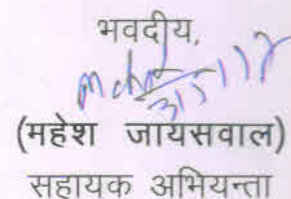 भवदीय,
31/5/17
(महेश जायसवाल)
सहायक अभियन्ता